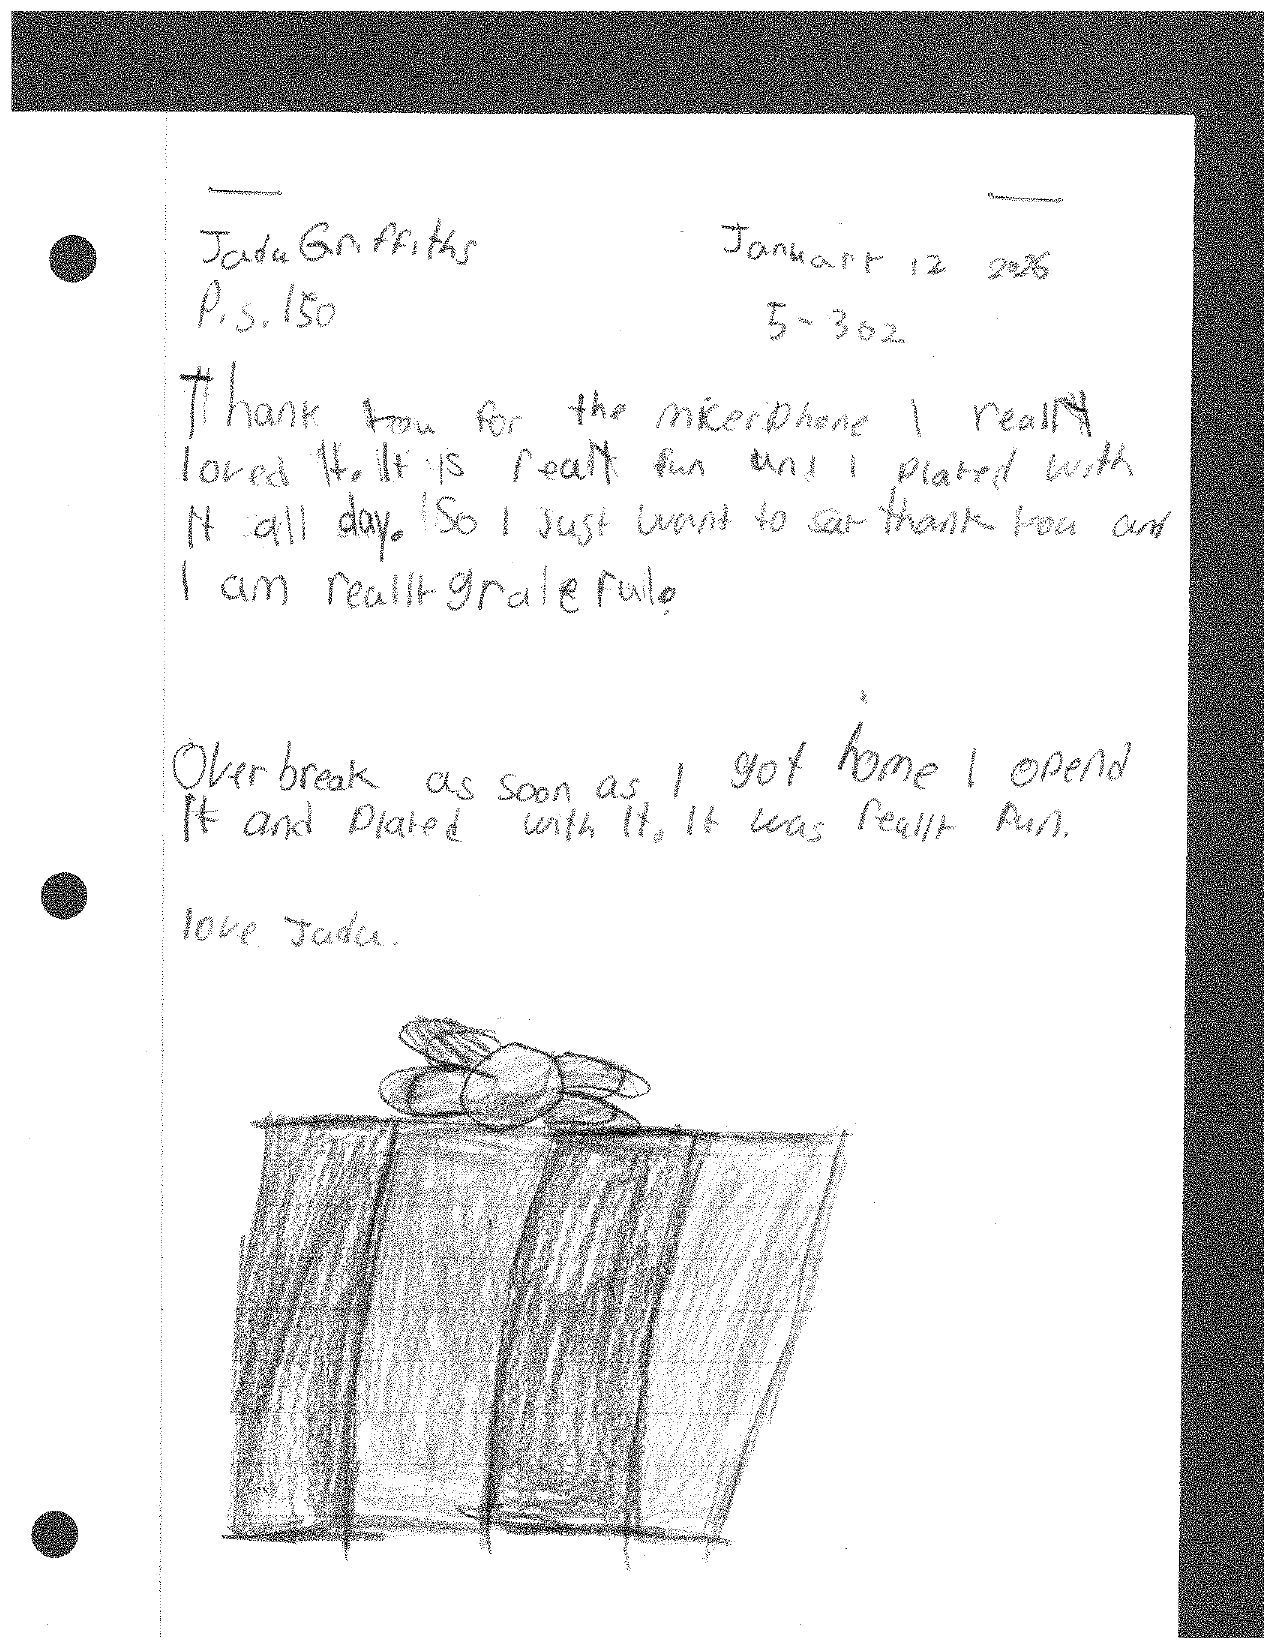 Jada Griffiths January 12 2026
P.S. 150 5-302
Thank you for the miceriphone I really
loved It. It is really fun and I played with
It all day. So I just want to say thank you and
I am really grateful.
Over break as soon as I got home I opend
It and played with It. It was really fun.
love Jada.